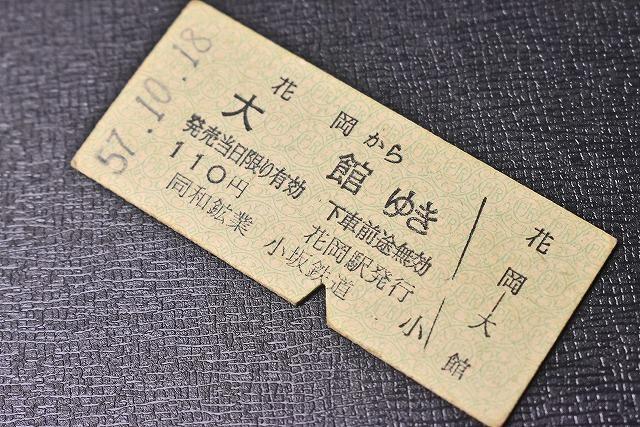 57.10.18
花岡から
大館ゆき
発売当日限り有効 下車前途無効
110円 花岡駅発行
同和鉱業 小坂鉄道
花岡
大館
小